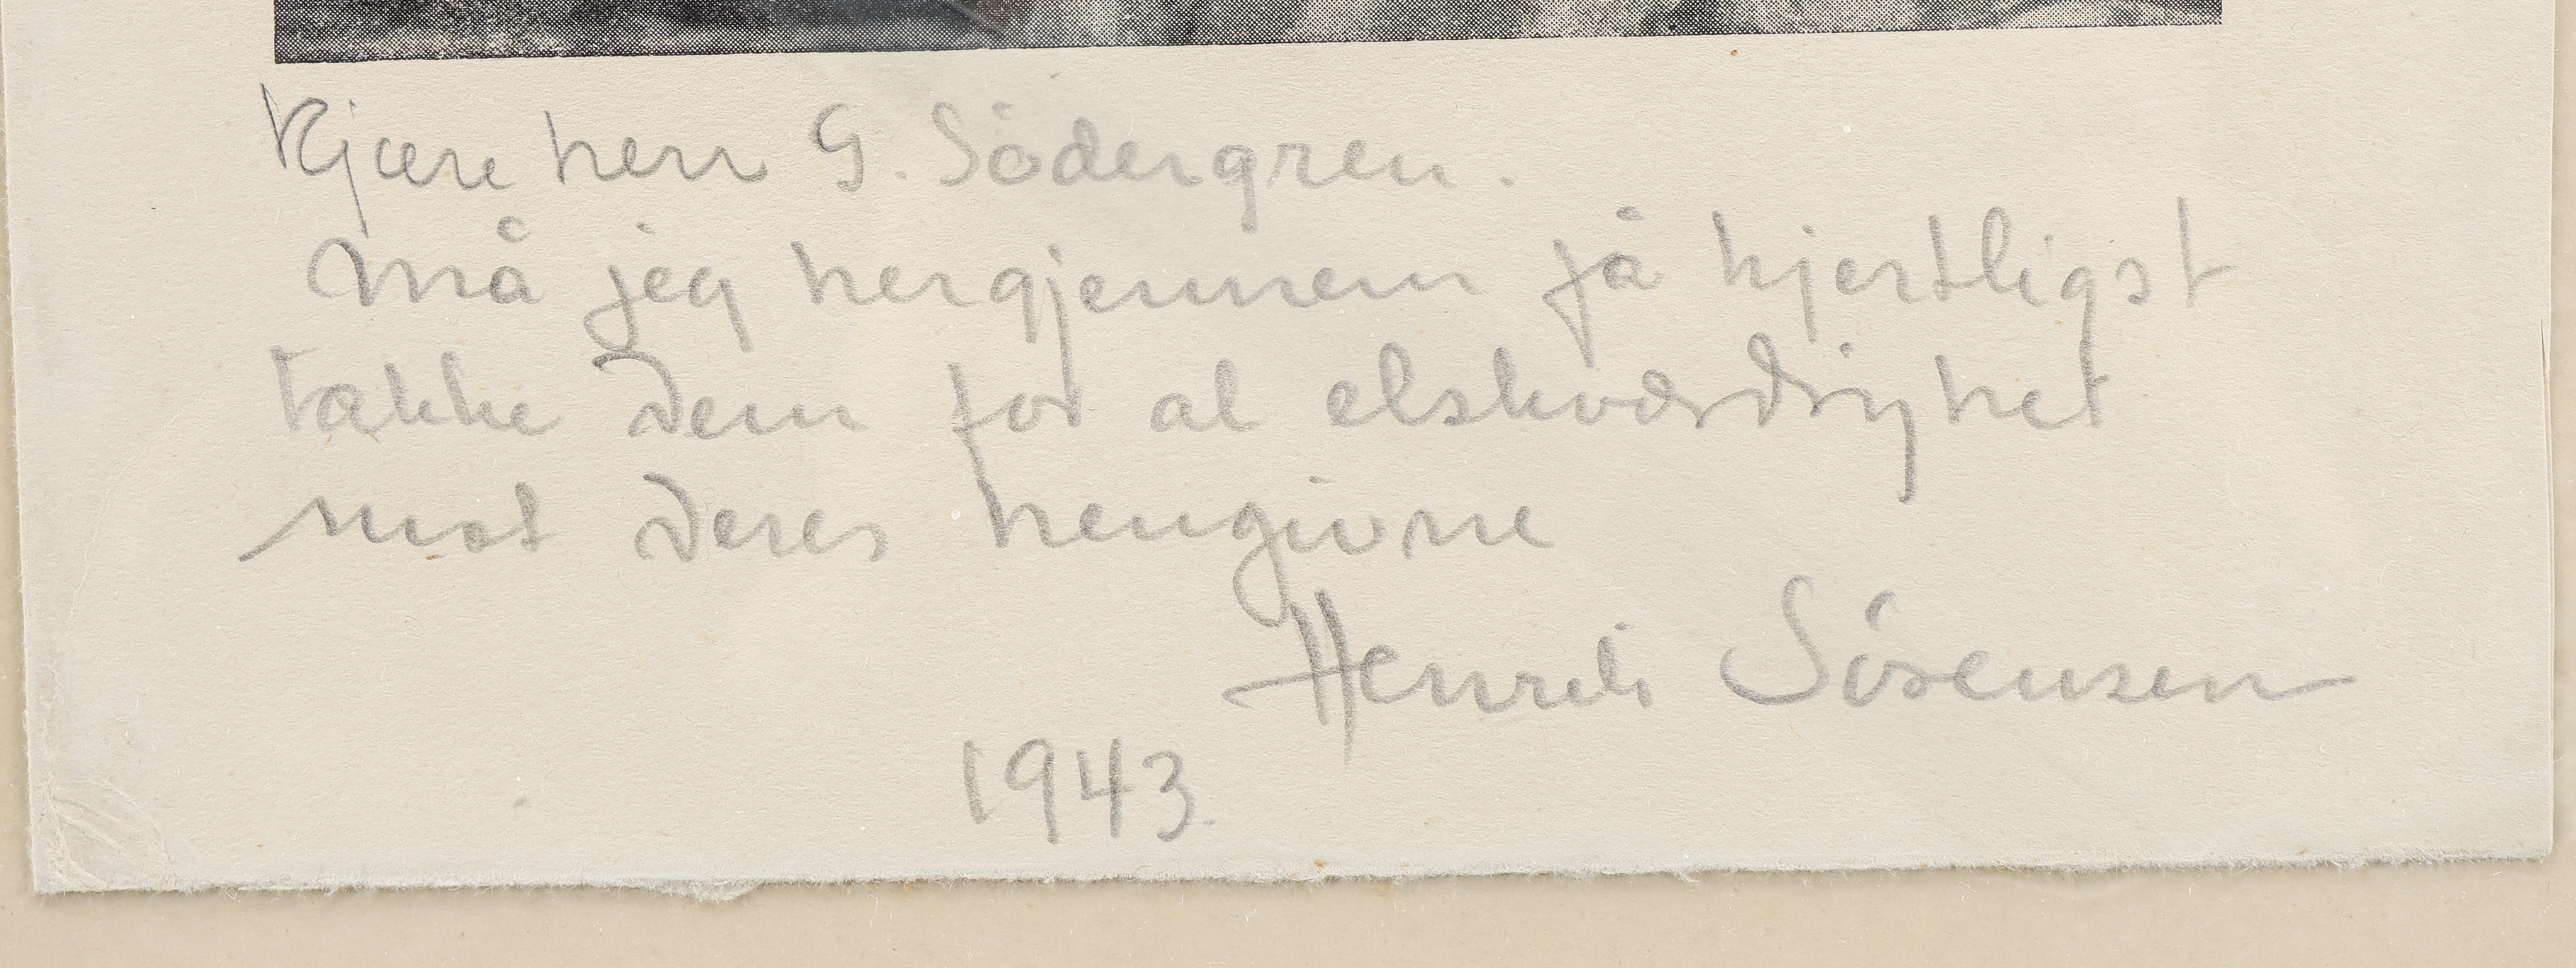 Kjære herr G. Södergren.
Må jeg hergjennem få hjertligst
takke Dem for al elskværdighet
mot Deres hengivne
Henrik Sörensen
1943.